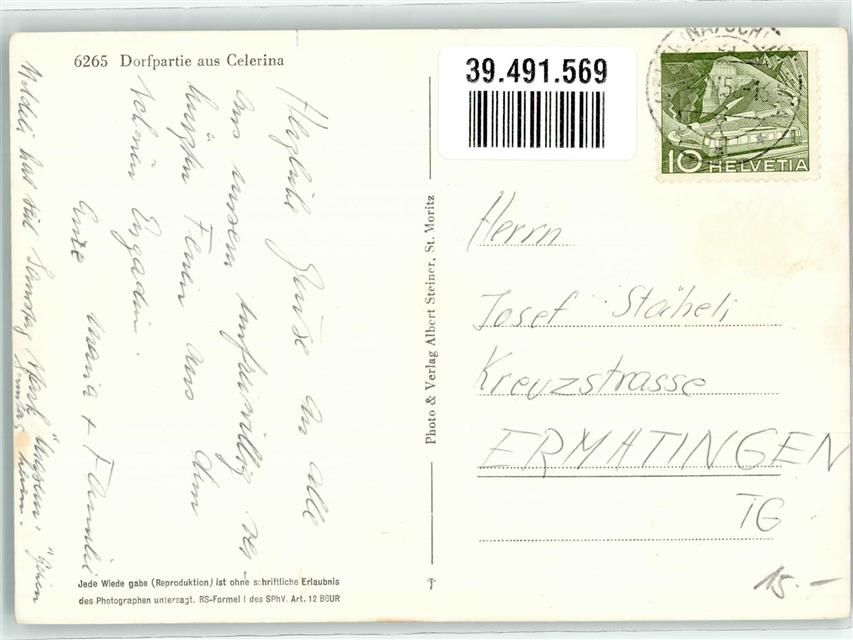 6265 Dorfpartie aus Celerina
39.491.569
10 HELVETIA
Herzliche Grüsse an alle
aus unsern unfreiwillig ver-
längten Ferien aus dem
schönen Engadin.
Eure
+ Familie
hat seit Samstag
Gehen
Sonntag heim.
Photo & Verlag Albert Steiner, St. Moritz
Herrn
Josef Stäheli
Kreuzstrasse
ERMATINGEN
TG
15.-
Jede Wiede gabe (Reproduktion) ist ohne schriftliche Erlaubnis
des Photographen untersagt. RS-Formel I des SPhV. Art. 12 BGUR